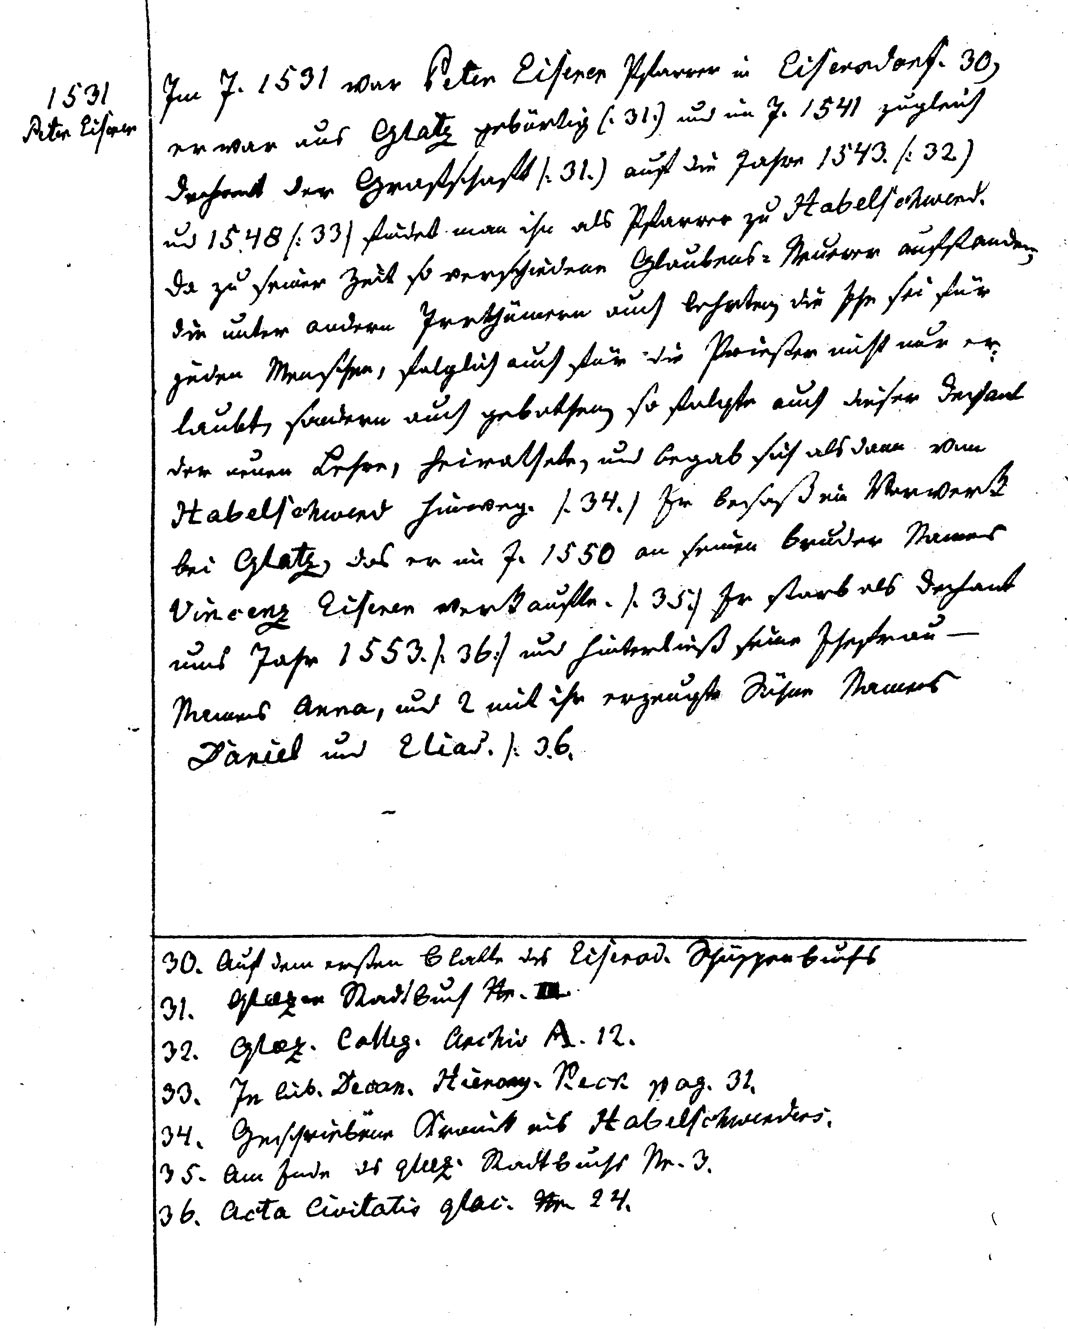 1531
Peter Eisener
Im J. 1531 war Peter Eisener Pfarrer in Eisersdorf. 30,
er war aus Glatz gebürtig (: 31.) und im J. 1541 zugleich
Dechant der Grafschaft (: 31.) auf die Jahre 1543. (: 32)
und 1548 (: 33) findet man ihn als Pfarrer zu Habelschwerd.
Da zu seiner Zeit so verschiedene Glaubens= Neuerer aufstanden,
die unter andern Irrthümern auch lehrten, die Ehe sei für
jeden Menschen, folglich auch für die Priester nicht nur er=
laubt, sondern auch gebothen, so folgte auch dieser Dechant
der neuen Lehre, heirathete, und begab sich alsdann von
Habelschwerd hinweg. (: 34.) Er besaß ein Vorwerk
bei Glatz, das er im J. 1550 an seinen Bruder Namens
Vincenz Eisener verkaufte. (: 35.) Er starb als Dechant
ums Jahr 1553. (: 36.) und hinterließ seine Ehefrau —
Namens Anna, und 2 mit ihr erzeugte Söhne Namens
Daniel und Elias. (: 36.
30. Auf dem ersten Blatte des Eisersd. Schöppenbuchs
31. Glatzer Stadtbuch Nr. III.
32. Glaz. Colleg. Archiv A. 12.
33. In lib. Decan. Hierony. Keck pag. 31.
34. Geschriebene Kronik aus Habelschwerdes.
35. Am Ende des glaz. Stadtbuchs Nr. 3.
36. Acta Civitatis glac. Nr. 24.